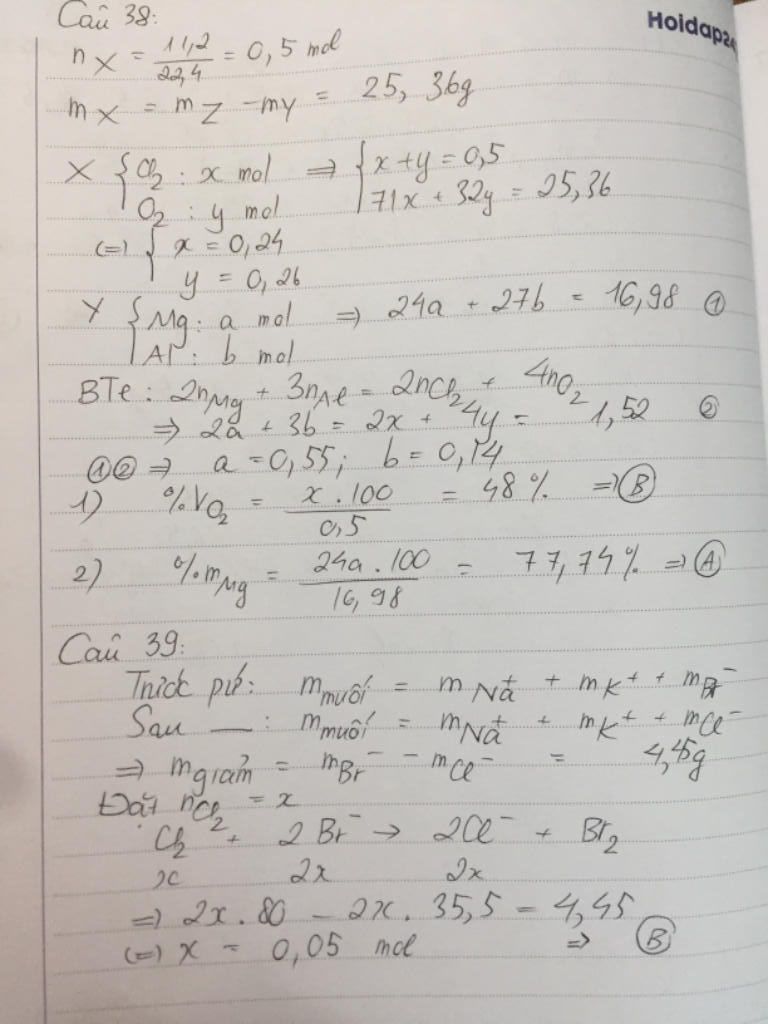 Câu 38:
Hoidap24
n X = 11,2/22,4 = 0,5 mol
m X = m Z - mY = 25,36g
X { Cl2 : x mol ⇒ { x + y = 0,5
O2 : y mol 71x + 32y = 25,36
(=) { x = 0,24
y = 0,26
Y { Mg: a mol ⇒ 24a + 27b = 16,98 ①
Al : b mol
BTe : 2nMg + 3nAl = 2nCl2 + 4nO2
⇒ 2a + 3b = 2x + 4y = 1,52 ②
①② ⇒ a = 0,55; b = 0,14
1) %VO2 = x.100/0,5 = 48% ⇒ Ⓑ
2) %mMg = 24a.100/16,98 = 77,74% ⇒ Ⓐ
Câu 39:
Trước pứ: m muối = m Na+ + mK+ + mBr-
Sau —: m muối = mNa+ + mK+ + mCl-
⇒ m giảm = mBr- - mCl- = 4,45g
Đặt nCl2 = x
Cl2 + 2Br- → 2Cl- + Br2
x 2x 2x
⇒ 2x.80 - 2x.35,5 = 4,45
(=) x = 0,05 mol ⇒ Ⓑ